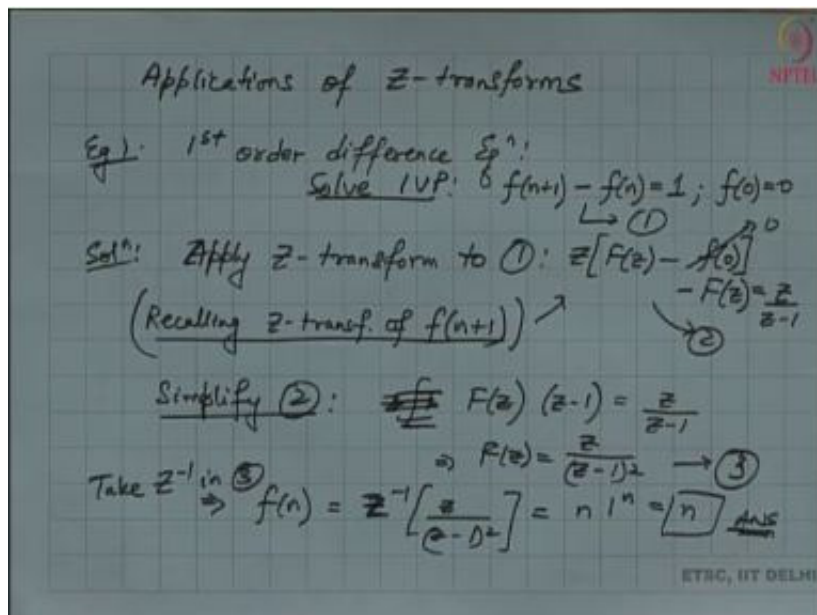 NPTEL
Applications of Z-transforms
Eg 1: 1st order difference Eqn:
Solve IVP: f(n+1) - f(n) = 1; f(0)=0
↳ ①
Soln: Apply Z-transform to ①: z[F(z) - f(0)] 0
- F(z) = z/(z-1)
(Recalling Z-transf. of f(n+1)) ↗ ↘ ②
Simplify ②: F(z) (z-1) = z/(z-1)
⇒ F(z) = z/(z-1)² → ③
Take Z⁻¹ in ③
⇒ f(n) = Z⁻¹[z/(z-1)²] = n 1ⁿ = n Ans
ETSC, IIT DELHI